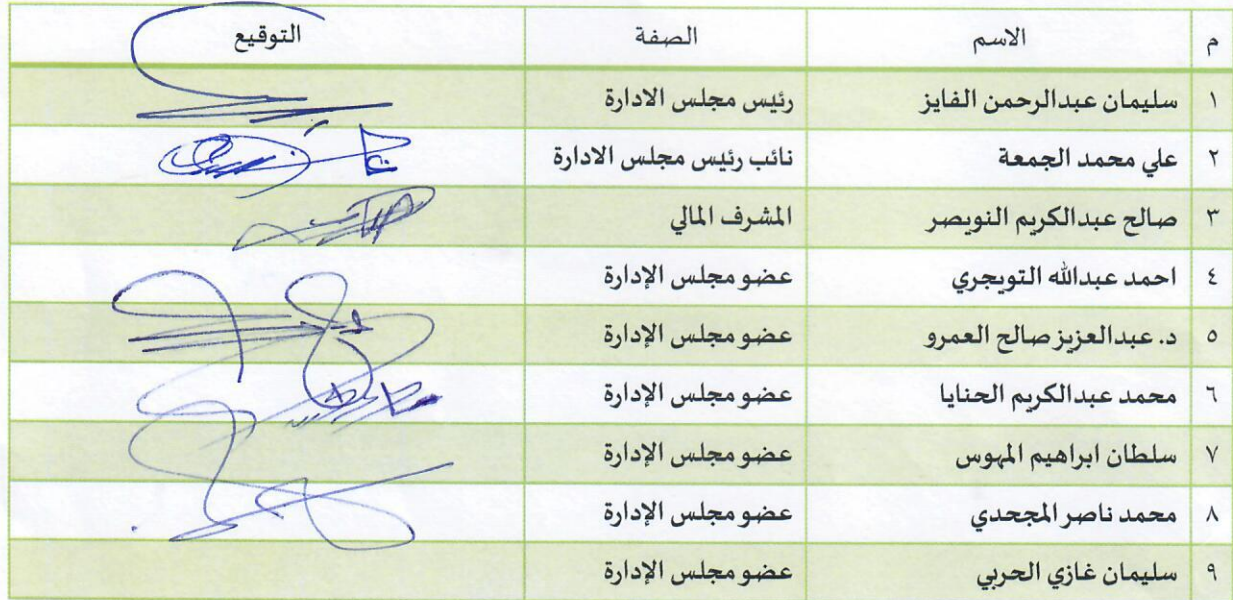 م الاسم الصفة التوقيع
١ سليمان عبدالرحمن الفايز رئيس مجلس الادارة
٢ علي محمد الجمعة نائب رئيس مجلس الادارة
٣ صالح عبدالكريم النويصر المشرف المالي
٤ احمد عبدالله التويجري عضو مجلس الإدارة
٥ د. عبدالعزيز صالح العمرو عضو مجلس الإدارة
٦ محمد عبدالكريم الحنايا عضو مجلس الإدارة
٧ سلطان ابراهيم المهوس عضو مجلس الإدارة
٨ محمد ناصر المجحدي عضو مجلس الإدارة
٩ سليمان غازي الحربي عضو مجلس الإدارة